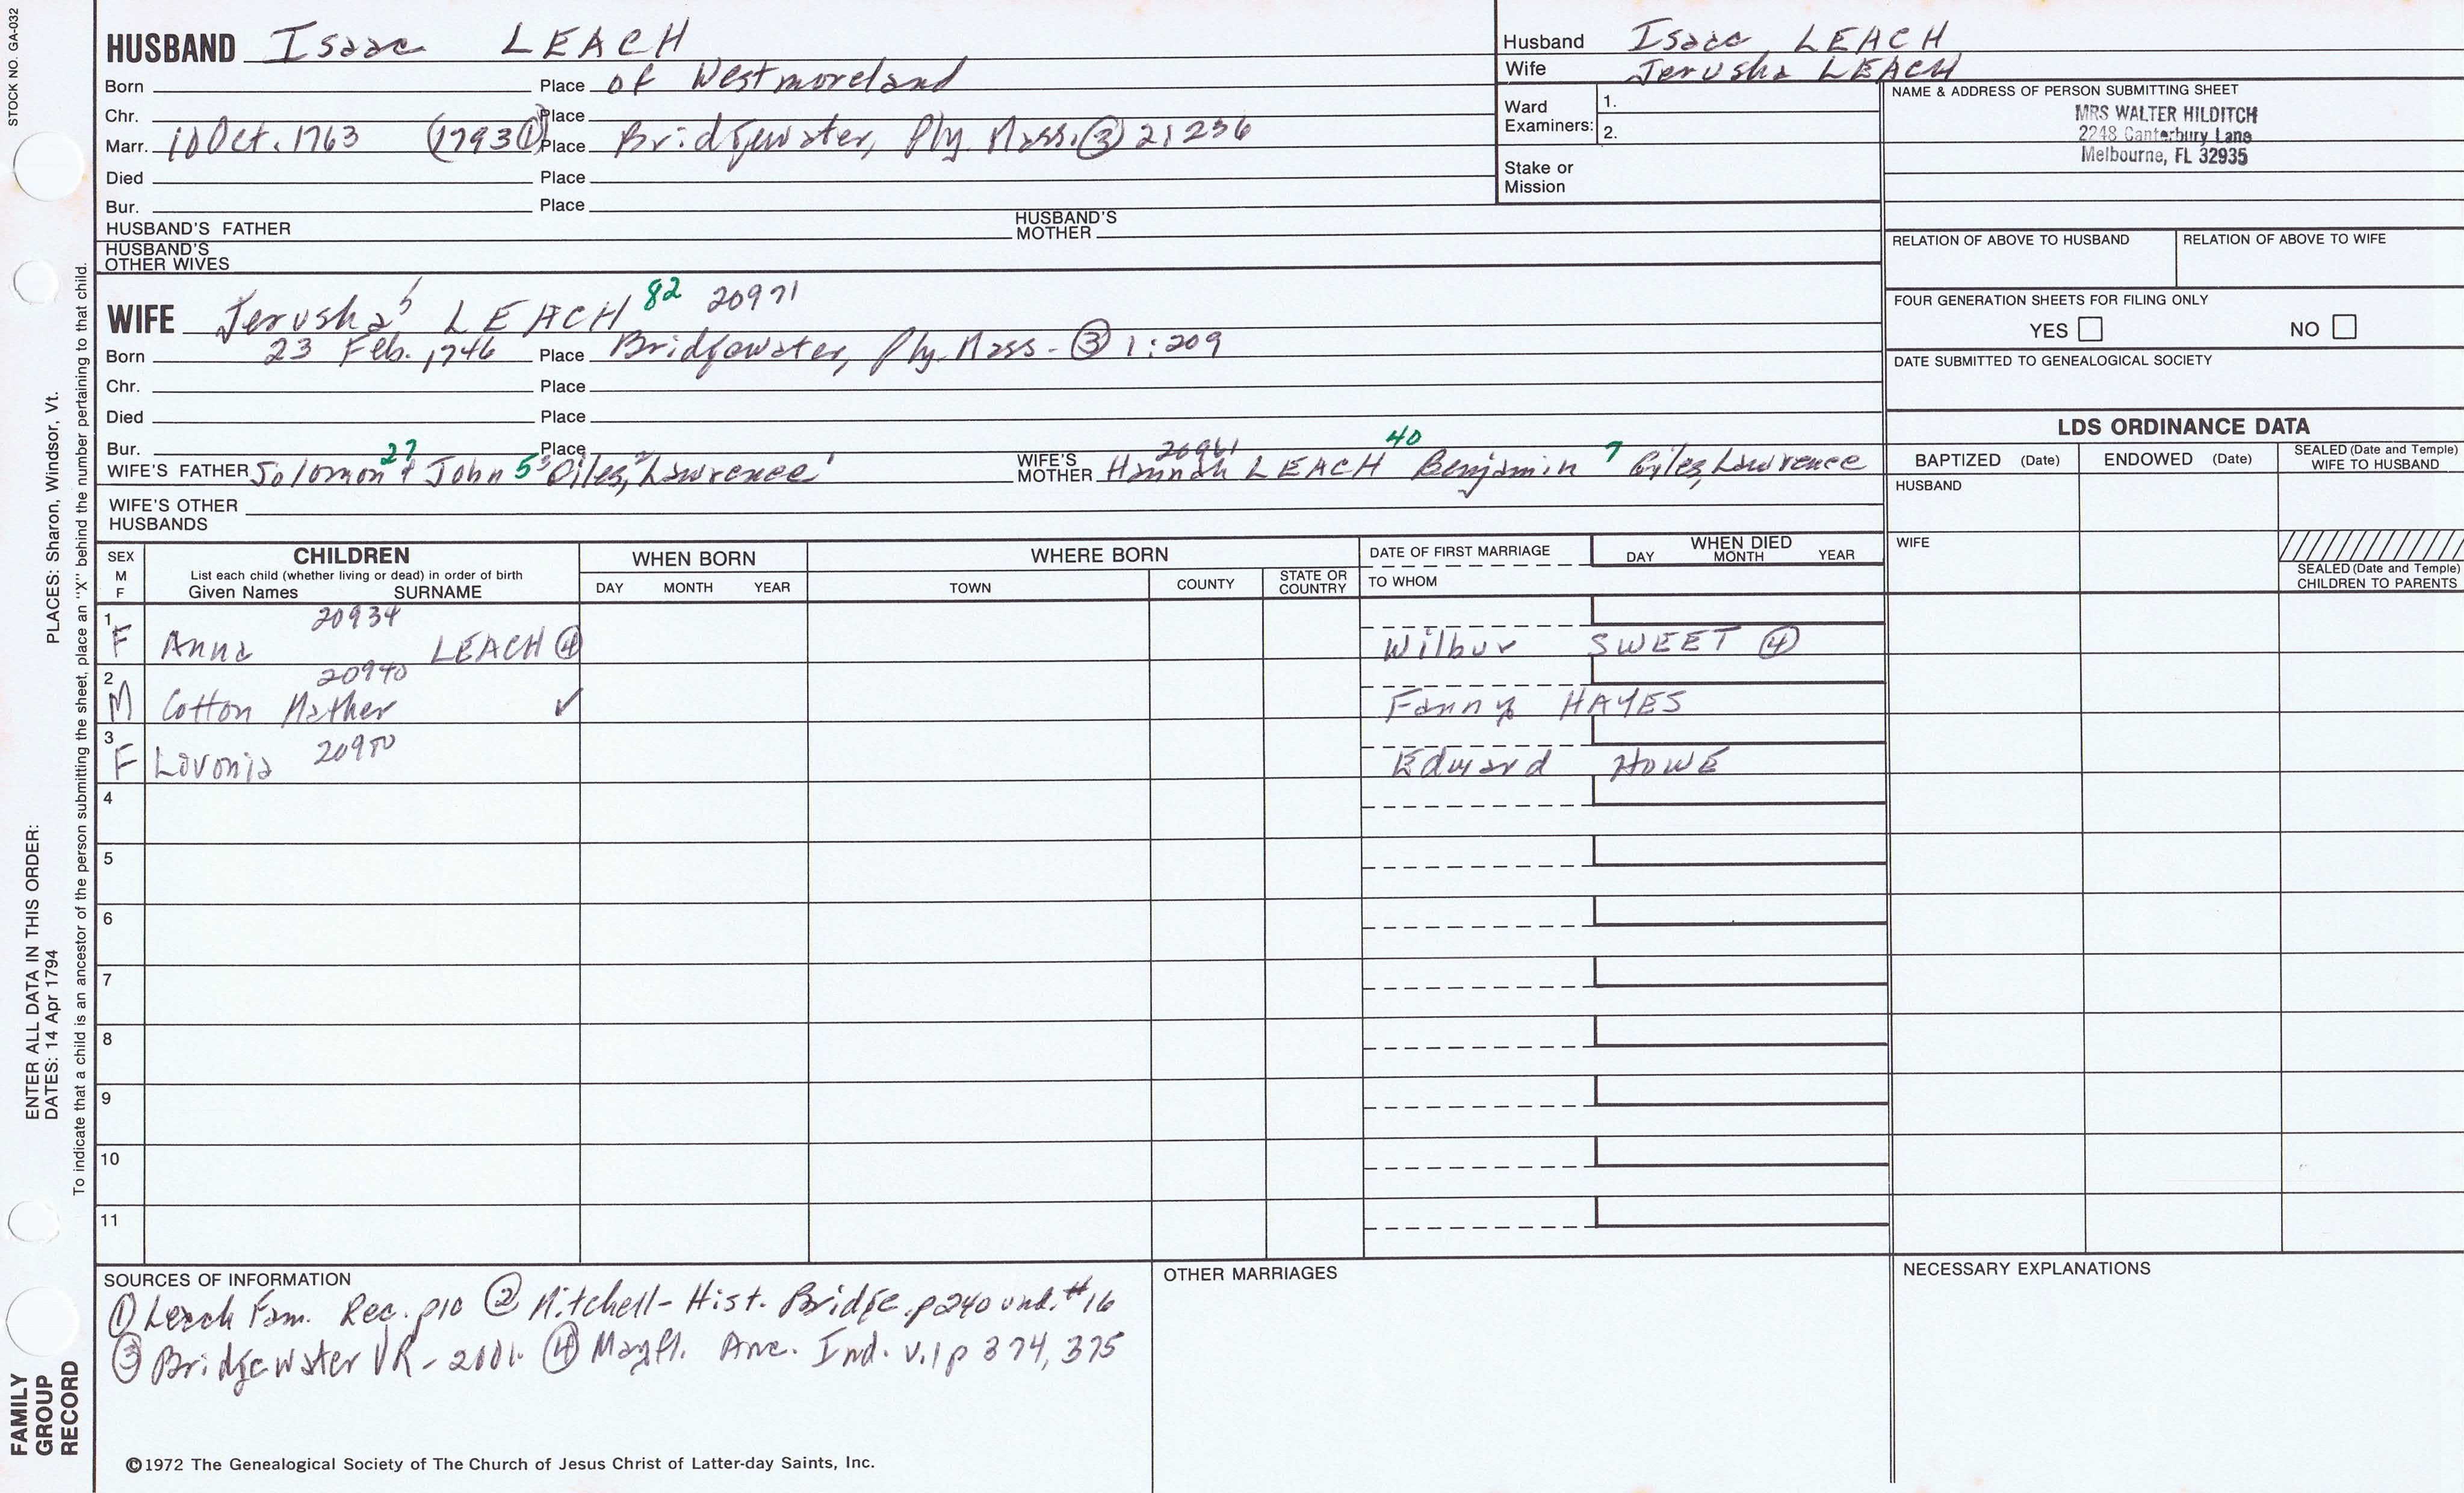 STOCK NO. GA-032
HUSBAND Isaac LEACH
Born Place of Westmoreland
Chr. Place
Marr. 10 Oct. 1763 (1793 ①) Place Bridgewater, Ply. Mass. ③ 2:236
Died Place
Bur. Place
HUSBAND'S FATHER HUSBAND'S MOTHER
HUSBAND'S OTHER WIVES
Husband Isaac LEACH
Wife Jerusha LEACH
Ward Examiners: 1.
2.
Stake or Mission
NAME & ADDRESS OF PERSON SUBMITTING SHEET
MRS WALTER HILDITCH
2248 Canterbury Lane
Melbourne, FL 32935
RELATION OF ABOVE TO HUSBAND RELATION OF ABOVE TO WIFE
FOUR GENERATION SHEETS FOR FILING ONLY
YES NO
DATE SUBMITTED TO GENEALOGICAL SOCIETY
WIFE Jerusha 5 LEACH 82 20971
Born 23 Feb. 1746 Place Bridgewater, Ply. Mass - ③ 1:209
Chr. Place
Died Place
Bur. Place
27 20961 40
WIFE'S FATHER Solomon 4 John 5 3 Giles, 2 Lawrence 1 WIFE'S MOTHER Hannah LEACH Benjamin 7 Giles, Lawrence
WIFE'S OTHER HUSBANDS
LDS ORDINANCE DATA
BAPTIZED (Date) ENDOWED (Date) SEALED (Date and Temple) WIFE TO HUSBAND
HUSBAND
WIFE
SEALED (Date and Temple) CHILDREN TO PARENTS
SEX M F CHILDREN WHEN BORN WHERE BORN DATE OF FIRST MARRIAGE WHEN DIED
List each child (whether living or dead) in order of birth
Given Names SURNAME DAY MONTH YEAR TOWN COUNTY STATE OR COUNTRY TO WHOM DAY MONTH YEAR
1 F Anna 20934 LEACH ④ Wilbur SWEET ④
2 M Cotton Mather 20940 ✓ Fanny HAYES
3 F Lovonia 20950 Edward HOWE
4
5
6
7
8
9
10
11
SOURCES OF INFORMATION
① Leach Fam. Rec. p10 ② Mitchell - Hist. Bridge. p240 und. #16
③ Bridgewater VR - ④ Mayfl. Anc. Ind. v.1 p 374, 375
OTHER MARRIAGES
NECESSARY EXPLANATIONS
©1972 The Genealogical Society of The Church of Jesus Christ of Latter-day Saints, Inc.
FAMILY GROUP RECORD
ENTER ALL DATA IN THIS ORDER:
DATES: 14 Apr 1794
PLACES: Sharon, Windsor, Vt.
To indicate that a child is an ancestor of the person submitting the sheet, place an "X" behind the number pertaining to that child.